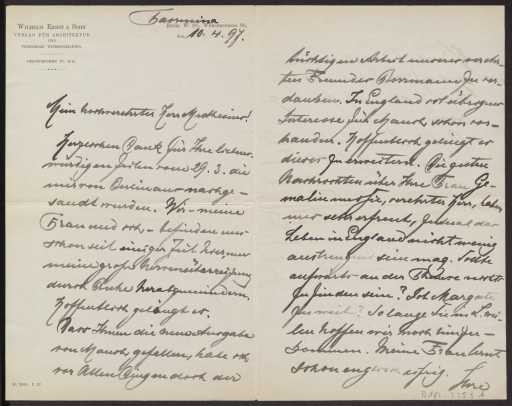 WILHELM ERNST & SOHN
VERLAG FÜR ARCHITEKTUR
UND
TECHNISCHE WISSENSCHAFTEN.
Taormina
Berlin W.
10.4.97.
Mein hochverehrter Herr
Herzlichen Dank für Ihre liebens-
würdigen Zeilen vom 29.3. die
mir von Berlin aus nachge-
sandt wurden. Wir - meine
Frau und ich - befinden uns
schon seit einiger Zeit hier, um
meine große Nervenüberreizung
durch Ruhe herabzumindern.
Hoffentlich gelingt es.
Dass Ihnen die neue Ausgabe
von Mauch gefallen, habe ich
vor Allen Dingen doch der
tüchtigen Arbeit unseres verehr-
ten Freundes Borrmann zu ver-
danken. In England ist übrigens
Interesse für Mauch schon vor-
handen. Hoffentlich gelingt es
dieses zu erweitern. Die guten
Nachrichten über Ihre Frau Ge-
malin und Sie, verehrter Herr, haben
uns sehr erfreut, zumal das
Leben in England nicht wenig
anstrengend sein mag. Sollte
an der Themse nichts
zu finden sein? Ist Margate
zu weit? Solange Sie in
hoffen wir noch hinzu-
kommen. Meine Frau lernt
schon englisch eifrig.
Ihre